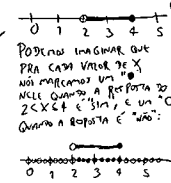 0 1 2 3 4 5
PODEMOS IMAGINAR QUE
PRA CADA VALOR DE X
NÓS MARCAMOS UM "●"
NELE QUANDO A RESPOSTA DO
2<X≤4 É "SIM", E UM "○"
QUANDO A RESPOSTA É "NÃO":
0 1 2 3 4 5